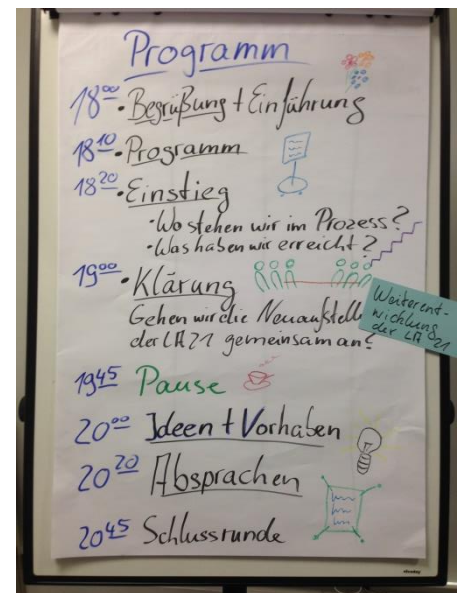 Programm
18⁰⁰ • Begrüßung + Einführung
18¹⁰ • Programm
18²⁰ • Einstieg
• Wo stehen wir im Prozess?
• Was haben wir erreicht?
19⁰⁰ • Klärung
Gehen wir die Neuaufstell
der LA21 gemeinsam an?
Weiterent-
wicklung
der LA 21
19⁴⁵ Pause
20⁰⁰ Ideen + Vorhaben
20²⁰ Absprachen
20⁴⁵ Schlussrunde